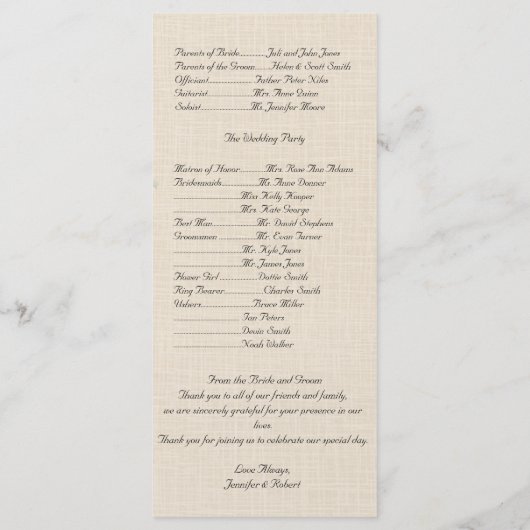 Parents of Bride............Juli and John Jones
Parents of the Groom......Helen & Scott Smith
Officiant.................... Father Peter Niles
Guitarist.....................Mrs. Anne Quinn
Soloist.......................Ms. Jennifer Moore
The Wedding Party
Matron of Honor............Mrs. Rose Ann Adams
Bridesmaids...............Ms. Anne Donner
..............................Miss Kelly Hooper
..............................Mrs. Kate George
Best Man....................Mr. David Stephens
Groomsmen ................Mr. Evan Turner
..............................Mr. Kyle Jones
..............................Mr. James Jones
Flower Girl .................Dottie Smith
Ring Bearer.................Charles Smith
Ushers.......................Bruce Miller
.............................. Ian Peters
..............................Devin Smith
..............................Noah Walker
From the Bride and Groom
Thank you to all of our friends and family,
we are sincerely grateful for your presence in our
lives.
Thank you for joining us to celebrate our special day.
Love Always,
Jennifer & Robert